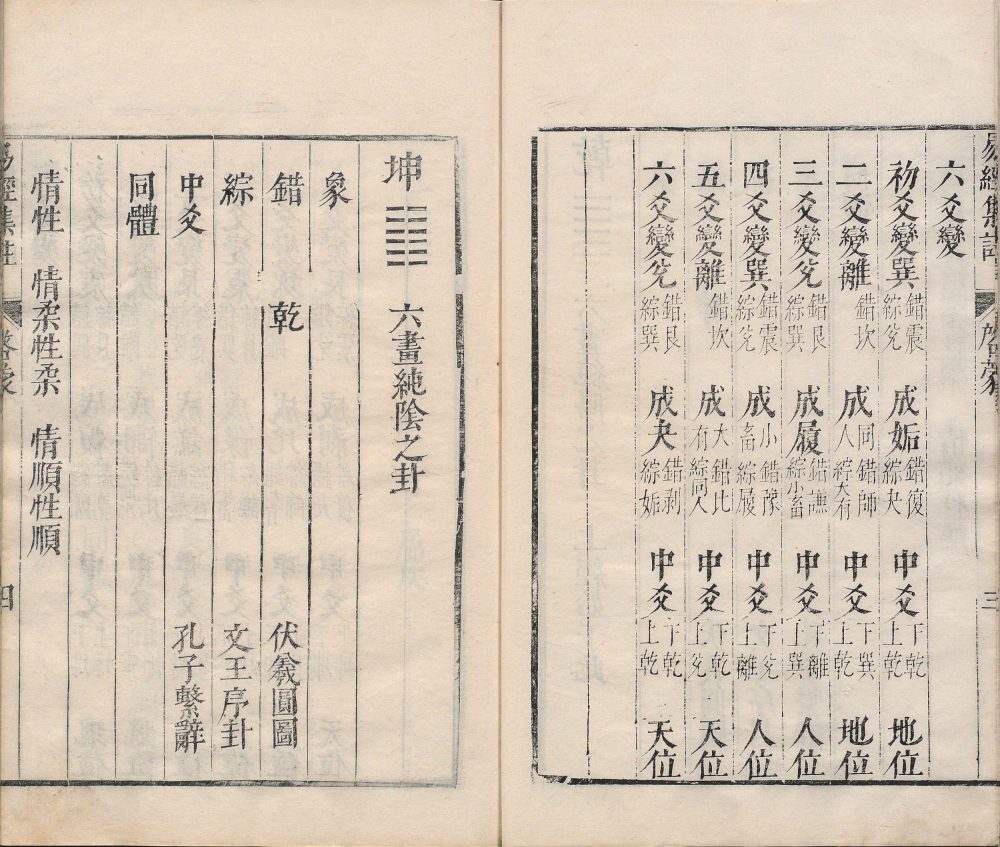 易經集註 啓蒙 三
六爻變
初爻變巽 錯震 綜兌 成姤 錯復 綜夬 中爻 下乾 上乾 地位
二爻變離 錯坎 成同人 錯師 綜大有 中爻 下巽 上乾 地位
三爻變兌 錯艮 綜巽 成履 錯謙 綜小畜 中爻 下離 上巽 人位
四爻變巽 錯震 綜兌 成小畜 錯豫 綜履 中爻 下兌 上離 人位
五爻變離 錯坎 成大有 錯比 綜同人 中爻 下乾 上兌 天位
六爻變兌 錯艮 綜巽 成夬 錯剥 綜姤 中爻 下乾 上乾 天位
坤 ䷁ 六畫純陰之卦
象
錯 乾 伏羲圓圖
綜 文王序卦
中爻 孔子繫辭
同體
情性 情柔性柔 情順性順
易經集註 啓蒙 四